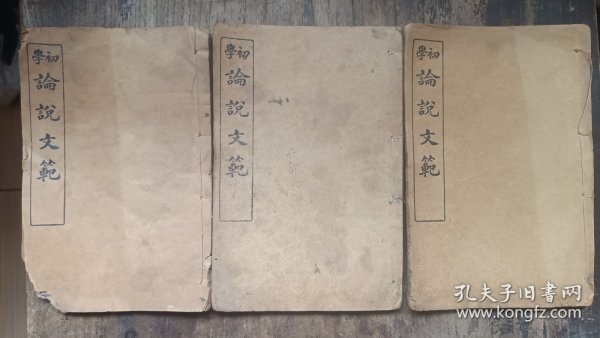 初學論說文範
初學論說文範
初學論說文範
孔夫子旧书网
www.kongfz.com